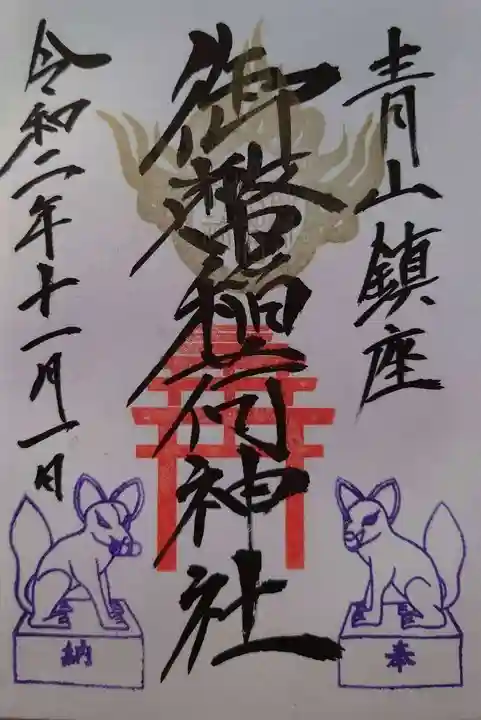 青山鎮座
御 稲荷神社
令和二年十一月一日
奉
納